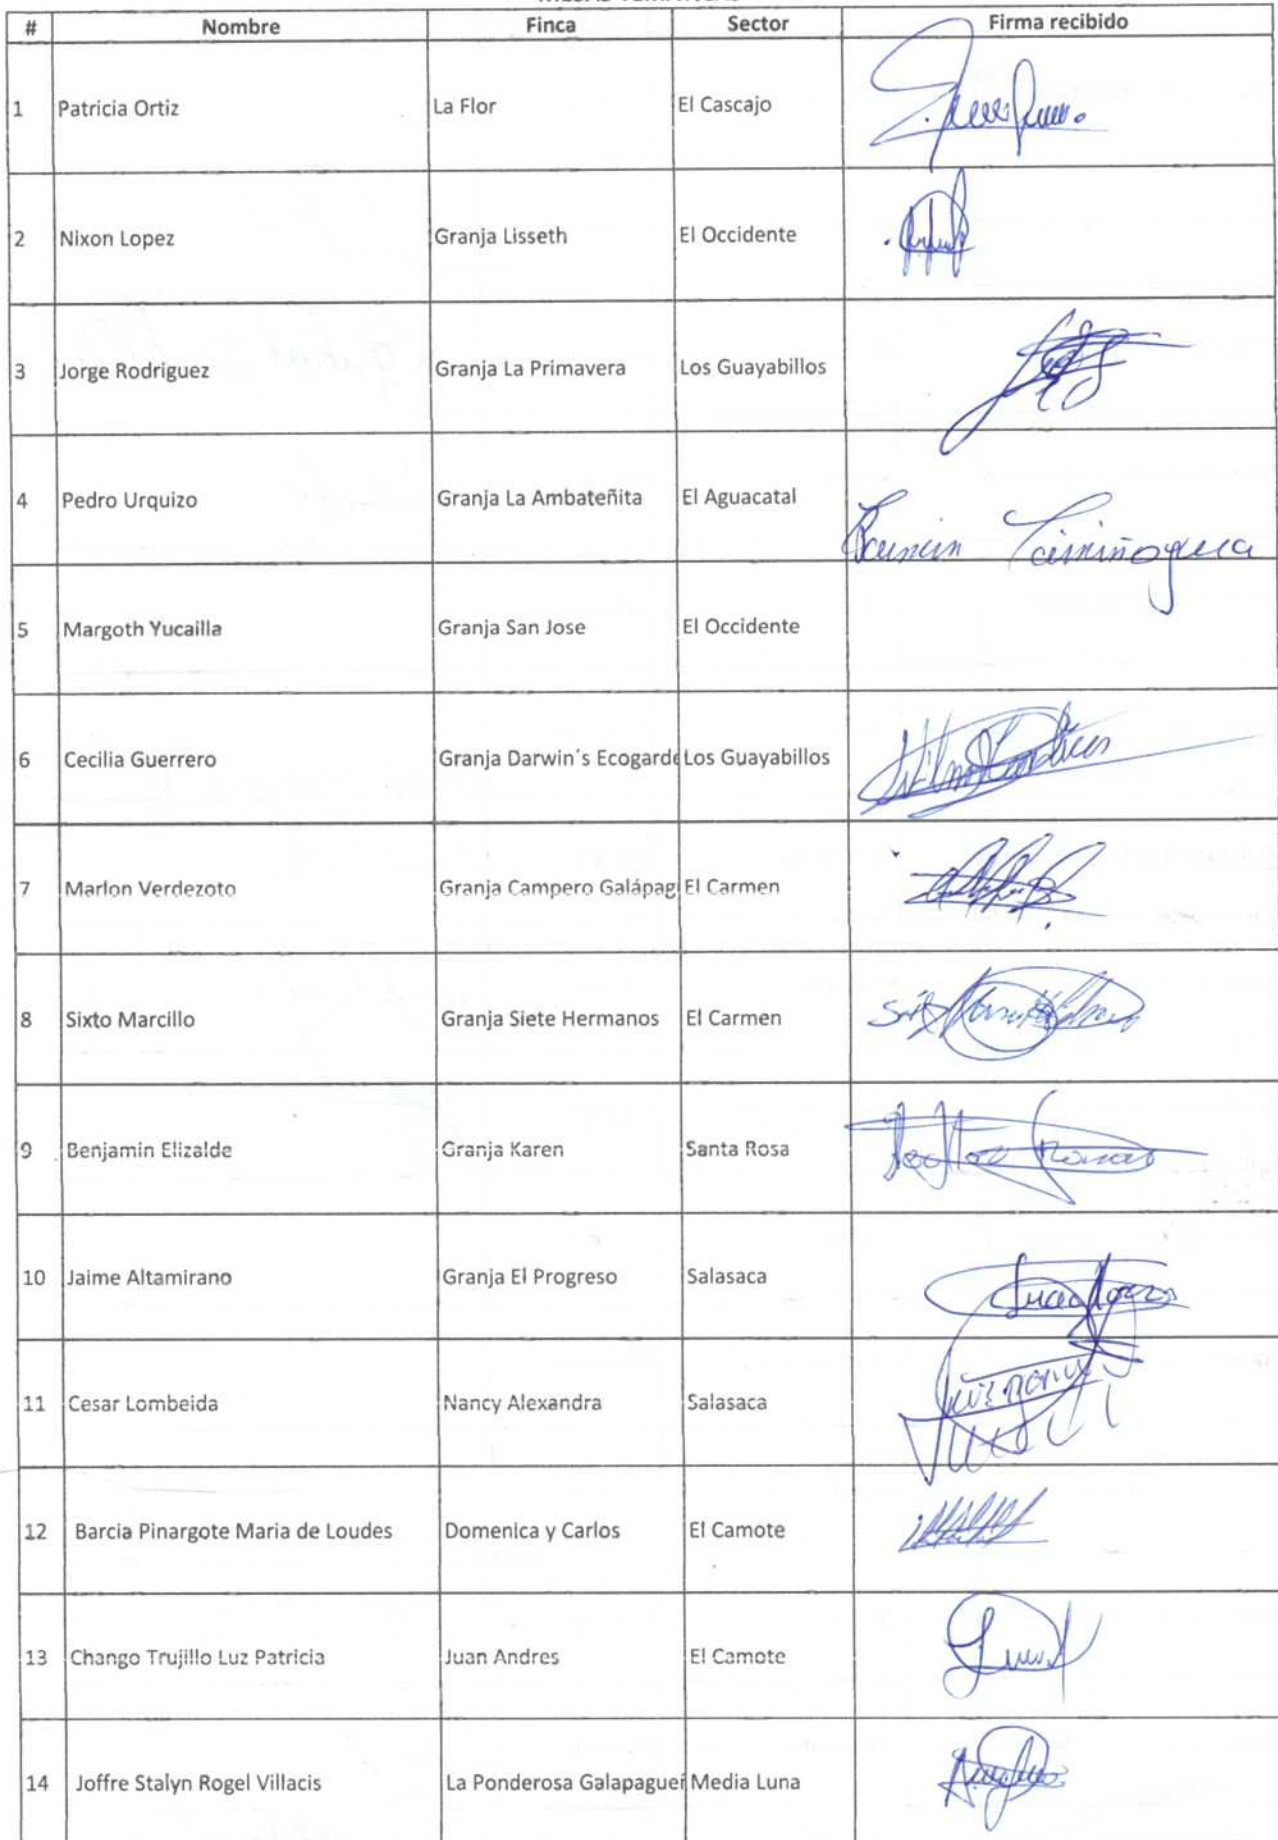 # Nombre Finca Sector Firma recibido
1 Patricia Ortiz La Flor El Cascajo
2 Nixon Lopez Granja Lisseth El Occidente
3 Jorge Rodriguez Granja La Primavera Los Guayabillos
4 Pedro Urquizo Granja La Ambateñita El Aguacatal
5 Margoth Yucailla Granja San Jose El Occidente
6 Cecilia Guerrero Granja Darwin´s Ecogarde Los Guayabillos
7 Marlon Verdezoto Granja Campero Galápag El Carmen
8 Sixto Marcillo Granja Siete Hermanos El Carmen
9 Benjamin Elizalde Granja Karen Santa Rosa
10 Jaime Altamirano Granja El Progreso Salasaca
11 Cesar Lombeida Nancy Alexandra Salasaca
12 Barcia Pinargote Maria de Loudes Domenica y Carlos El Camote
13 Chango Trujillo Luz Patricia Juan Andres El Camote
14 Joffre Stalyn Rogel Villacis La Ponderosa Galapaguei Media Luna